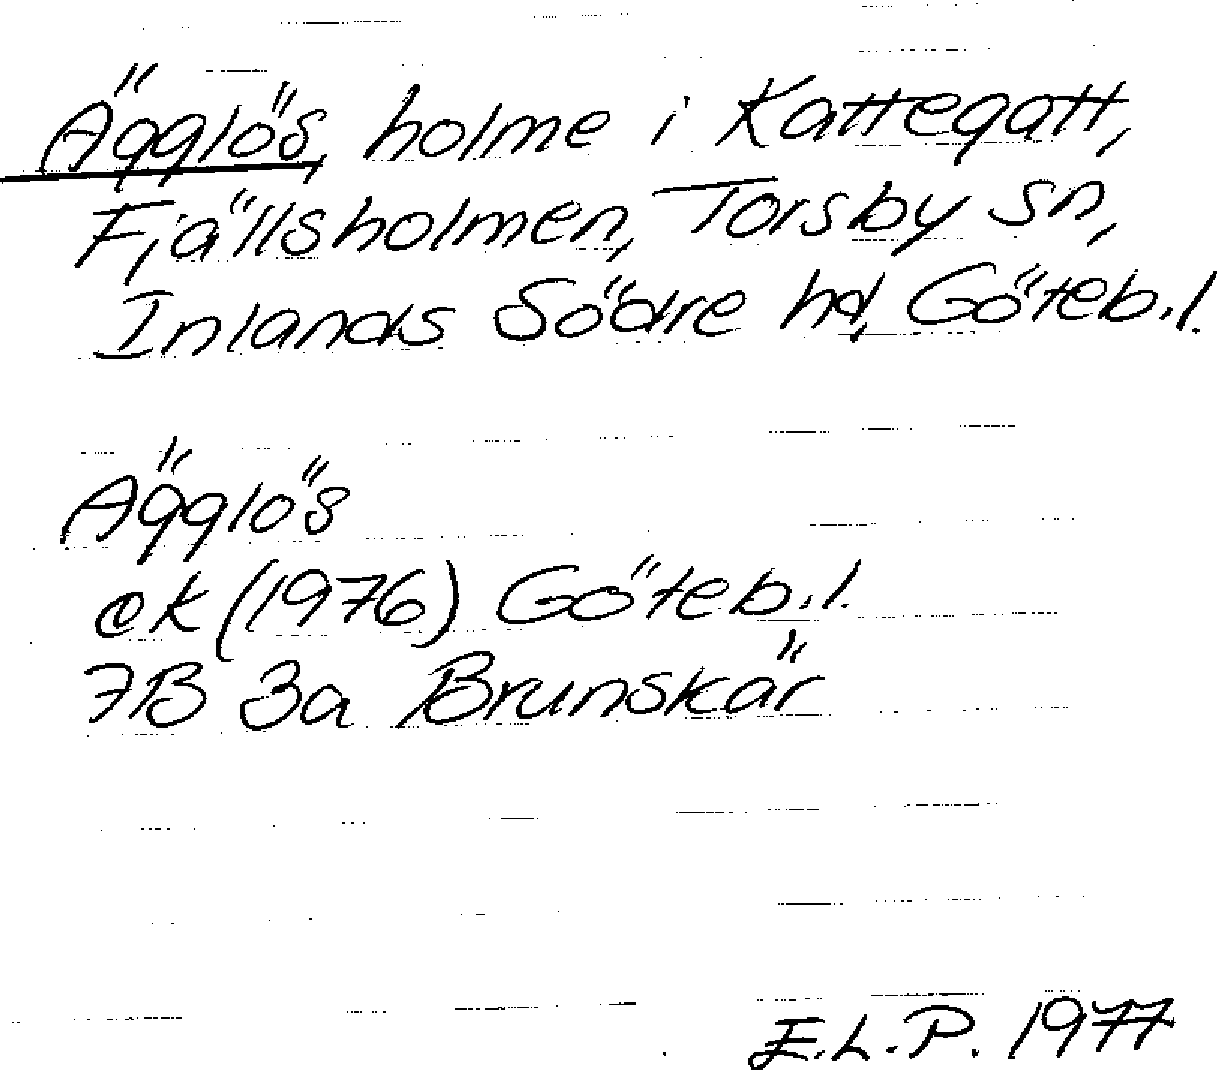 Ägglös, holme i Kattegatt,
Fjällsholmen, Torsby sn,
Inlands Södre hd, Göteb.l.
Ägglös
ek (1976) Göteb.l.
7B 3a Brunskär
E.L.P. 1977